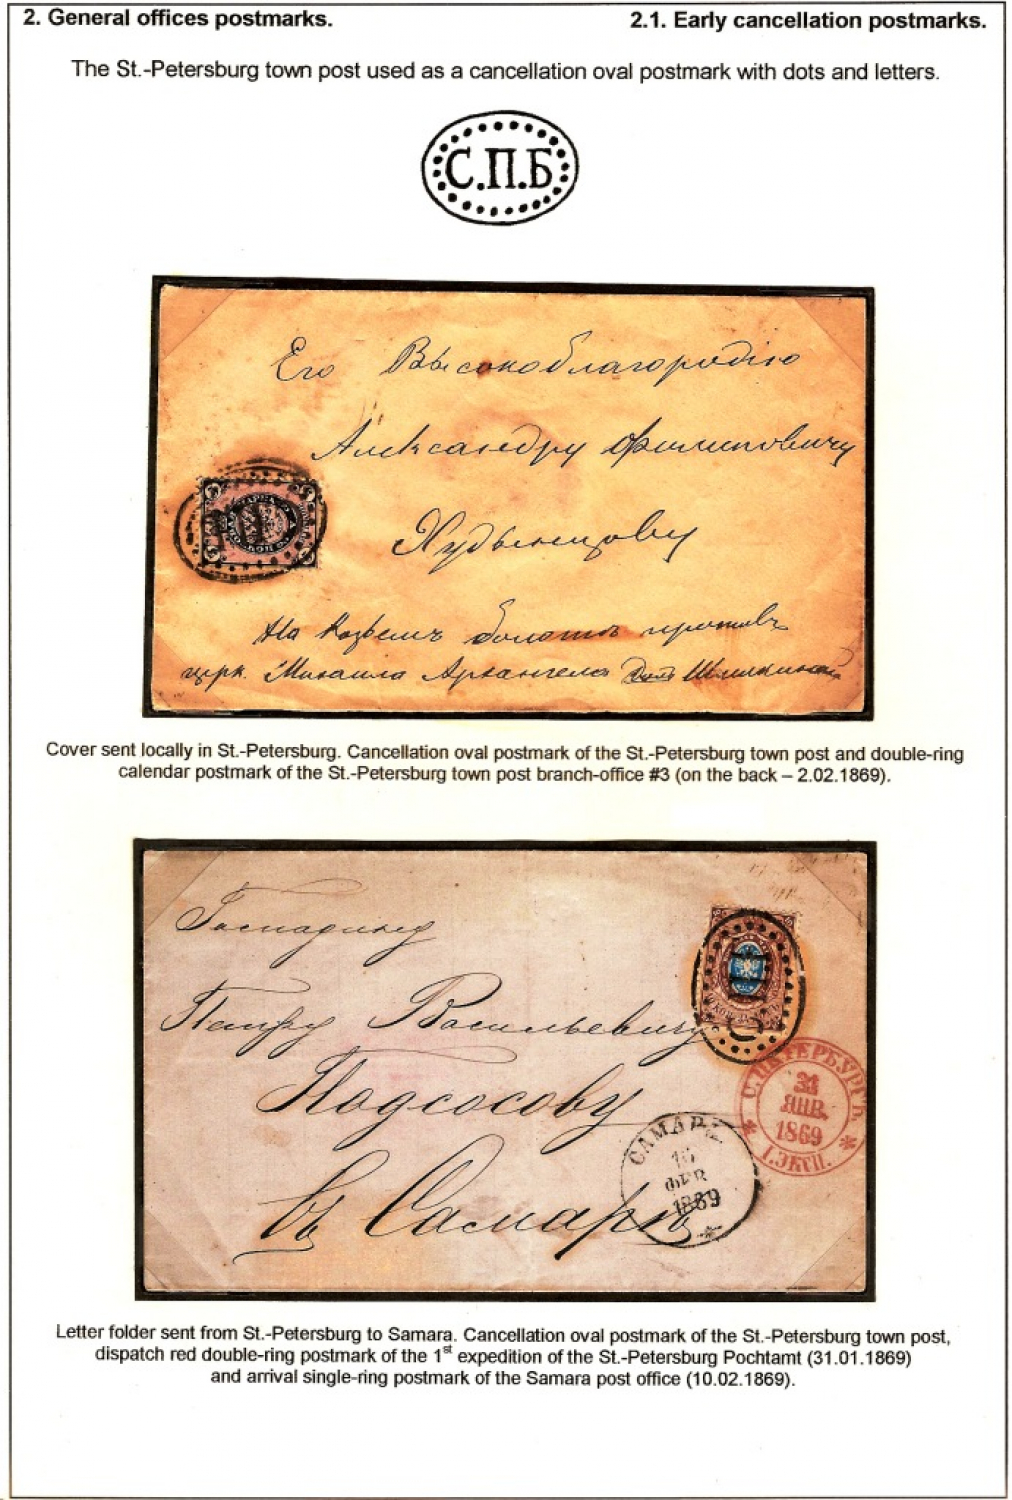 2. General offices postmarks. 2.1. Early cancellation postmarks.
The St.-Petersburg town post used as a cancellation oval postmark with dots and letters.
С.П.Б
Его Высокоблагородію
Александру Филиповичу
На Козьемъ болотѣ противъ
церк. Михаила Архангела домъ
Cover sent locally in St.-Petersburg. Cancellation oval postmark of the St.-Petersburg town post and double-ring
calendar postmark of the St.-Petersburg town post branch-office #3 (on the back – 2.02.1869).
Господину
Петру Васильевичу
Подсосову
въ Самарѣ
С.ПЕТЕРБУРГЪ
31
ЯНВ.
1869
1.ЭКСП.
САМАРА
10
ФЕВ
1869
Letter folder sent from St.-Petersburg to Samara. Cancellation oval postmark of the St.-Petersburg town post,
dispatch red double-ring postmark of the 1st expedition of the St.-Petersburg Pochtamt (31.01.1869)
and arrival single-ring postmark of the Samara post office (10.02.1869).